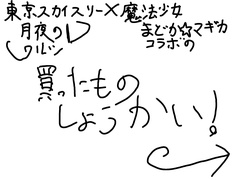 東京スカイスリー×魔法少女
月夜のレ まどか☆マギカ
しのルシ コラボの
買ったもの
しょうかい!